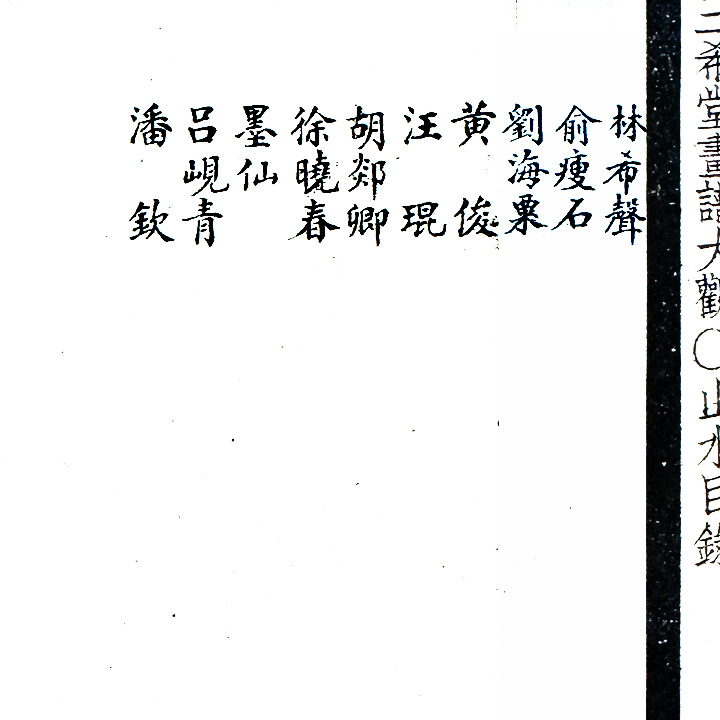 三希堂畫譜大觀○山水目錄
林希聲
俞瘦石
劉海粟
黃俊
汪琨
胡郯卿
徐曉春
墨仙
呂峴青
潘欽